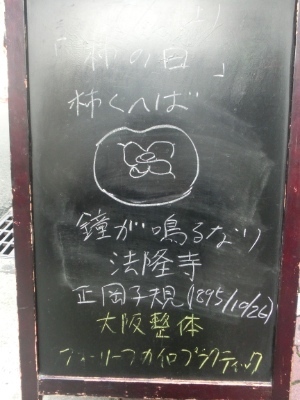 「柿の日」
柿くへば
鐘が鳴るなり
法隆寺
正岡子規(1895/10/26)
大阪整体
フォーリーフカイロプラクティック